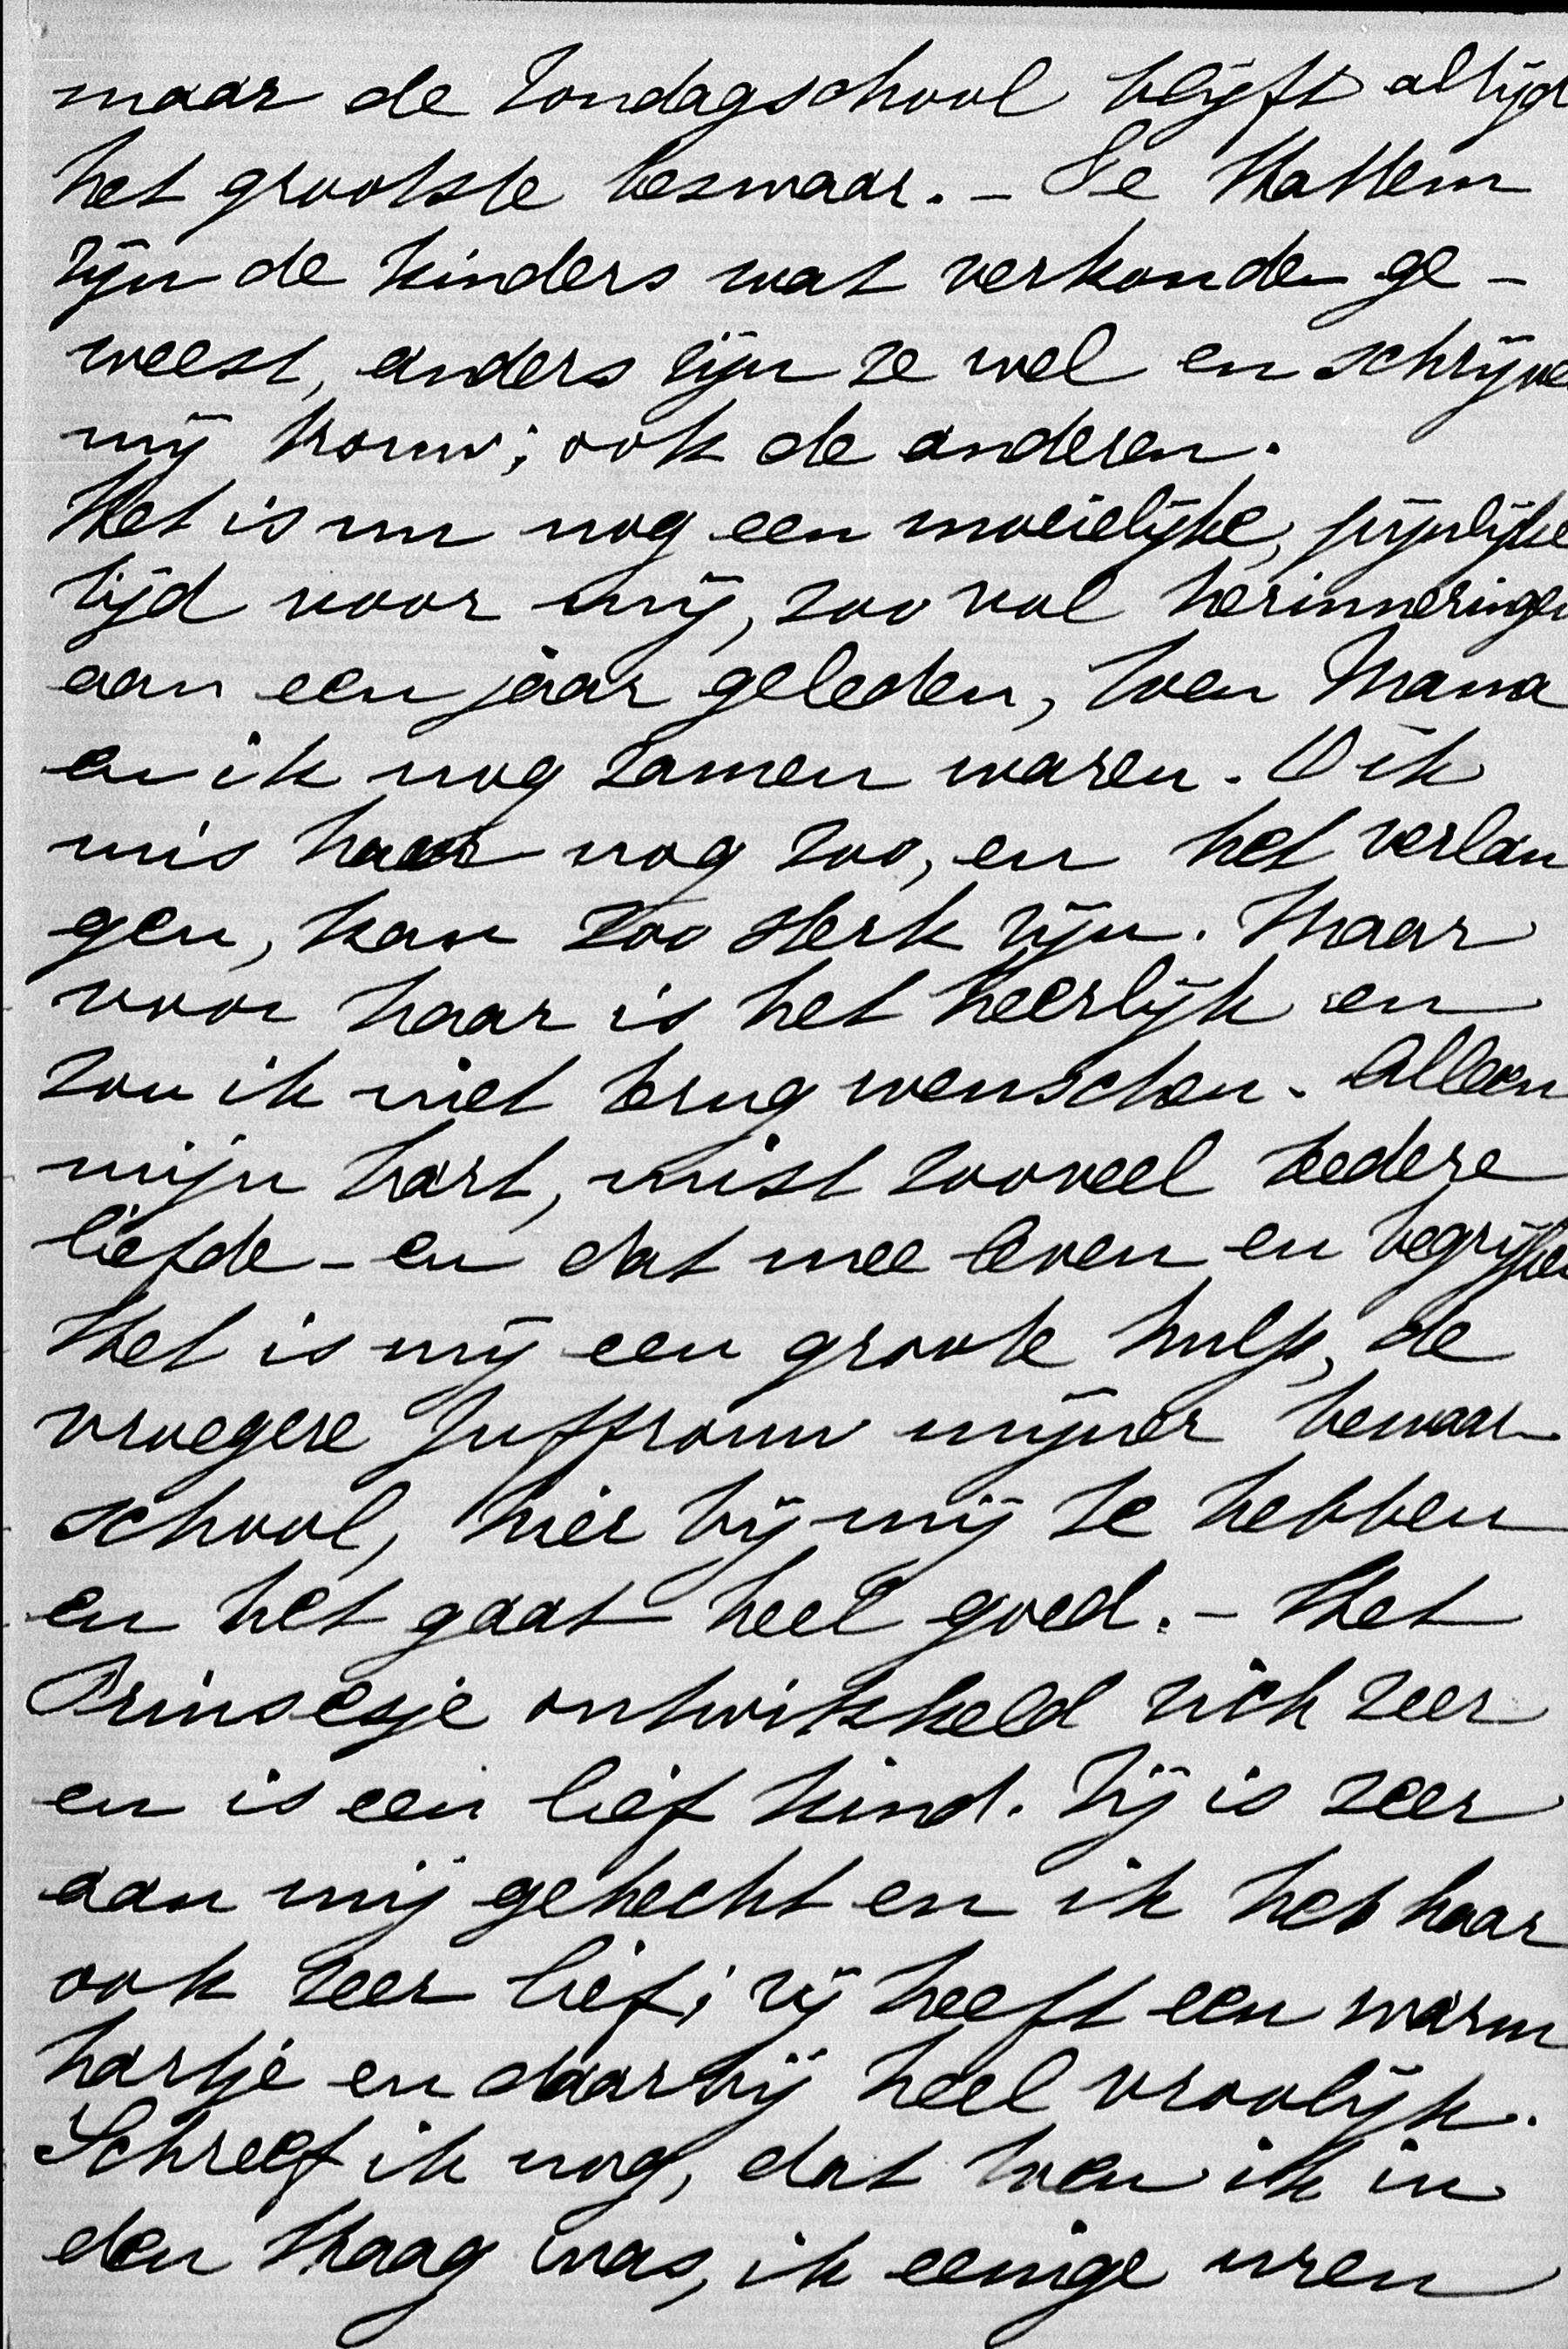 maar de Zondagschool blijft altijd
het grootste bezwaar. - Te Hattem
zijn de kinders wat verkouden ge-
weest, anders zijn ze wel en schrijve
mij trouw; ook de anderen.
Het is nu nog een moeielijke, pijnlijke
tijd voor mij, zoo vol herinneringen
aan een jaar geleden, toen Mama
en ik nog zamen waren. O ik
mis haar nog zoo, en het verlan
gen, kan zoo sterk zijn. Maar
voor haar is het heerlijk en
zou ik niet terug wenschen. Alleen
mijn hart, mist zooveel teedere
liefde - en dat mee leven en begrijpen
Het is mij een groote hulp, de
vroegere Juffrouw mijner bewaar-
school, hier bij mij te hebben
en het gaat heel goed. - Het
Prinsesje ontwikkeld zich zeer
en is een lief kind. Zij is zeer
aan mij gehecht en ik heb haar
ook zeer lief; zij heeft een warm
hartje en daarbij heel vroolijk.
Schreef ik nog, dat toen ik in
den Haag was, ik eenige uren